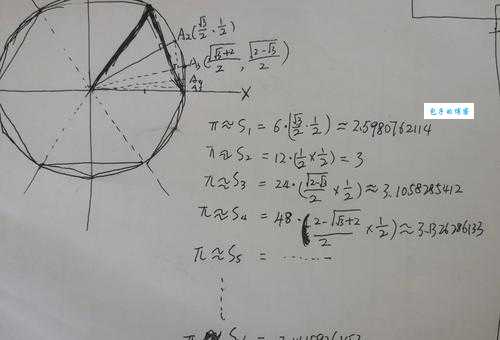 A₂(√3/2 · 1/2)
A₃(√(√3+2)/2 , √(2-√3)/2)
A₄
X
包子的博客
π≈S₁ = 6·(√3/2 · 1/2) ≈ 2.5980762114
π≈S₂ = 12·(1/2 × 1/2) = 3
π≈S₃ = 24·(√(2-√3)/2 × 1/2) ≈ 3.1058285412
π≈S₄ = 48·(2-√(√3+2)/2 × 1/2) ≈ 3.1326286133
π≈S₅ = ……